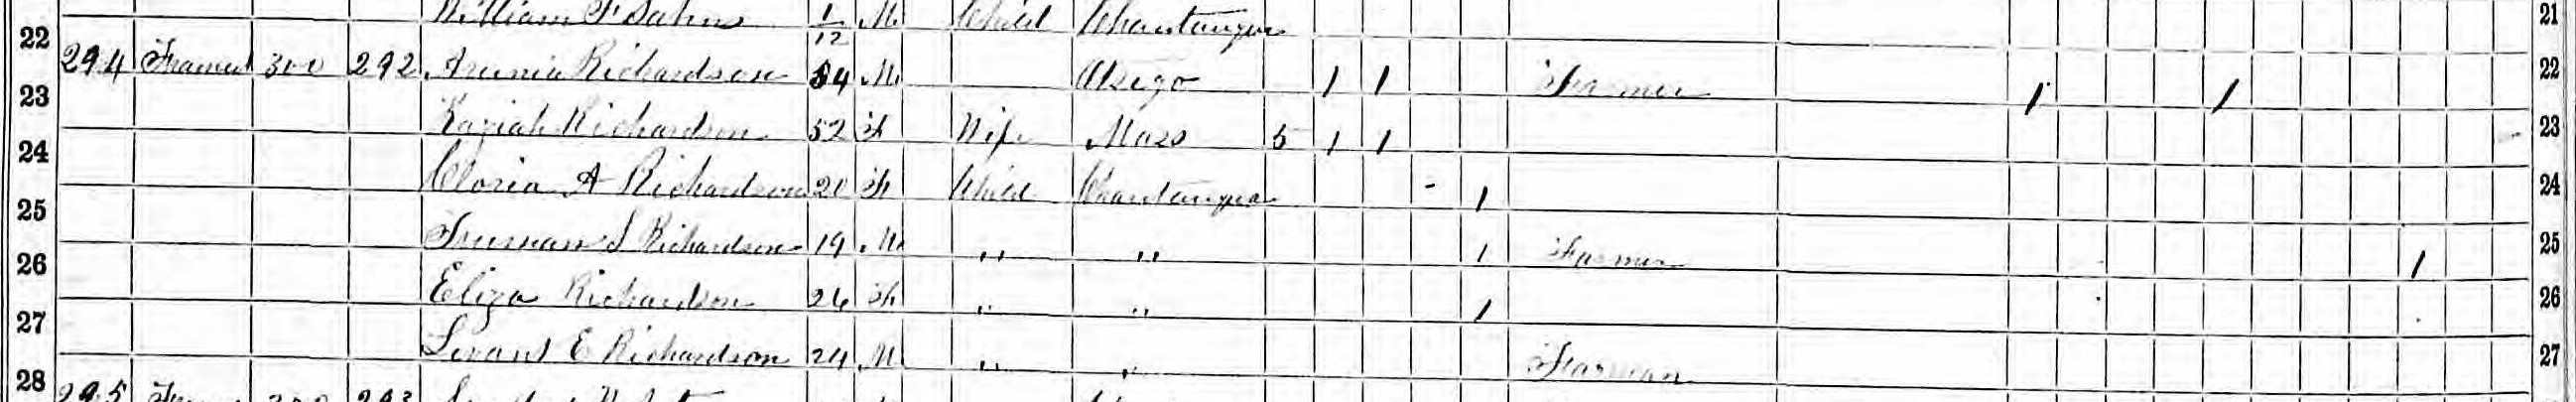 William F Sahn 1/12 M Child Chautauqua 21
22 294 Framed 300 292 Richardson 54 M Otsego 1 1 Farmer 1 1 22
23 Kaziah Richardson 52 F Wife Mass 5 1 1 23
24 Cloria A Richardson 20 F Child Chautauqua - 1 24
25 Truman S Richardson 19 M " " 1 Farmer 1 25
26 Eliza Richardson 26 F " " 1 26
27 Levant E Richardson 24 M " " Farman 27
28 295 293